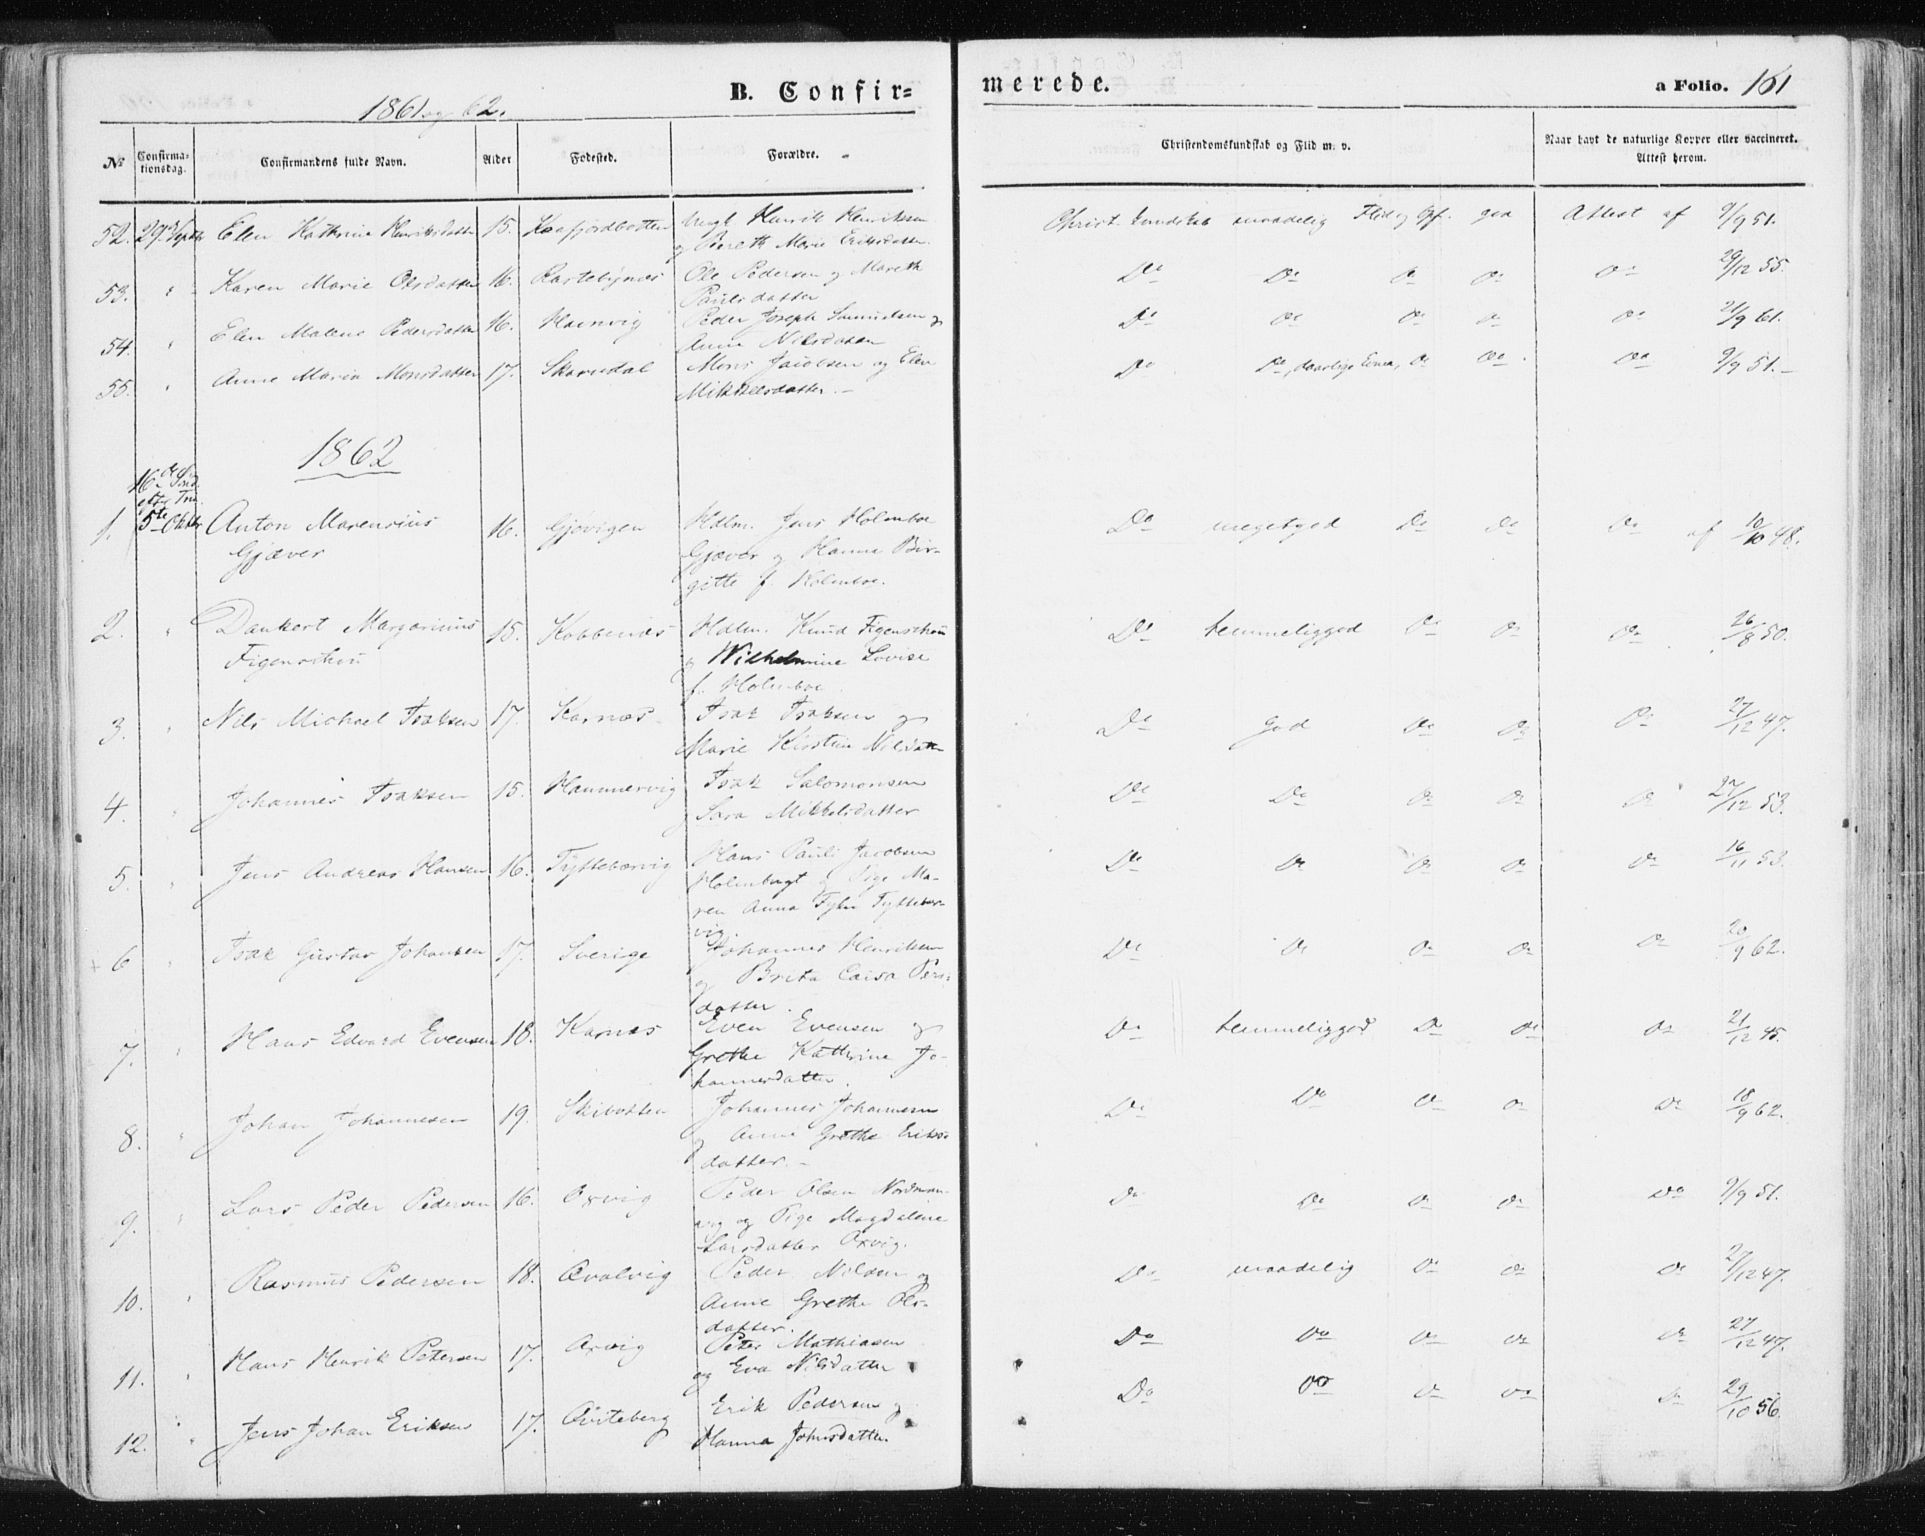 1861 og 62.
B. Confir=
merede.
a Folio. 161
No
Confirma-
tionsdag.
Confirmandens fulde Navn.
Alder
Fodested.
Forældre.
Christendomskundskab og Flid m. v.
Naar havt de naturlige Kopper eller vaccineret.
Attest herom.
52. 29 Septbr Elen Kathrine Henriksdatter 15. Kaafjordbotten Ungk Henrik Henriksen Christ. kundskab maadelig Flid og Opf. god Attest af 9/9 51.
og Bereth Marie Eriksdatter.
53. " Karen Marie Olsdatter 16. Ole Pedersen og Mareth Do Do Do Do Do 29/12 55.
Paulsdatter
54. " Elen Malene Pedersdatter 16. Havnvig Peder Joseph Samuelsen og Do Do Do Do Do 21/9 61.
Anne Nilsdatter
55. " Anne Maria Monsdatter 17. Skardal Mons Jacobsen og Elen Do Do, daarlige Evner, Do Do Do 9/9 51.
Mikkelsdatter.
1862
16de Sønd.
efter Trin.
1. 5te Oktbr Anton Marensius 16. Gjøvigen Hdlm. Jens Holmboe Do megetgod Do Do Do af 10/10 48.
Gjæver Gjæver og Hanna Bir-
gitte f. Holmboe.
2. " Dankert Margarinus 15. Kobbenæs Hdlm. Knud Figenschou Do temmeliggod Do Do Do 26/8 50.
Figenschou og Wilhelmine Lovise
f. Holmboe.
3. " Nils Michael Isaksen 17. Karnæs Isak Isaksen og Do god Do Do Do 27/12 47.
Marie Kirstine Nilsdatter
4. " Johannes Isaksen 15. Hammervig Isak Salomonsen Do Do Do Do Do 27/12 53.
og Sara Mikkelsdatter
5. " Jens Andreas Hansen 16. Tyttebærvig Hans Pauli Jacobsen Do Do Do Do Do 16/11 53.
Holmbugt og Pige Ma-
ren Anna Tyttebær-
vig.
6 " Isak Gustav Johansen 17. Sverige Johannes Henriksen Do Do Do Do Do 20/9 62.
og Brita Caisa Pers-
datter.
7. " Hans Edvard Evensen 18. Karnæs Even Evensen og Do temmeliggod Do Do Do 21/12 45.
Grethe Kathrine Jo-
hannesdatter.
8. " Johan Johannesen 19. Skibotten Johannes Johannesen Do Do Do Do Do 18/9 62.
og Anne Grethe Eriks-
datter.
9. " Lars Peder Pedersen 16. Oxvig Peder Olsen Nordman- Do Do Do Do Do 9/9 51.
vig og Pige Magdalene
Larsdatter Oxvig.
10. " Rasmus Pedersen 18. Qvalvig Peder Nilsen og Do maadelig Do Do Do 27/12 47.
Anne Grethe Ols-
datter.
11. " Hans Henrik Petersen 17. Oxvig Peter Mathiasen Do Do Do Do Do 27/12 47.
og Eva Nilsdatter
12. " Jens Johan Eriksen 17. Qviteberg Erik Pedersen og Do Do Do Do Do 29/10 56.
Hanna Johnsdatter.